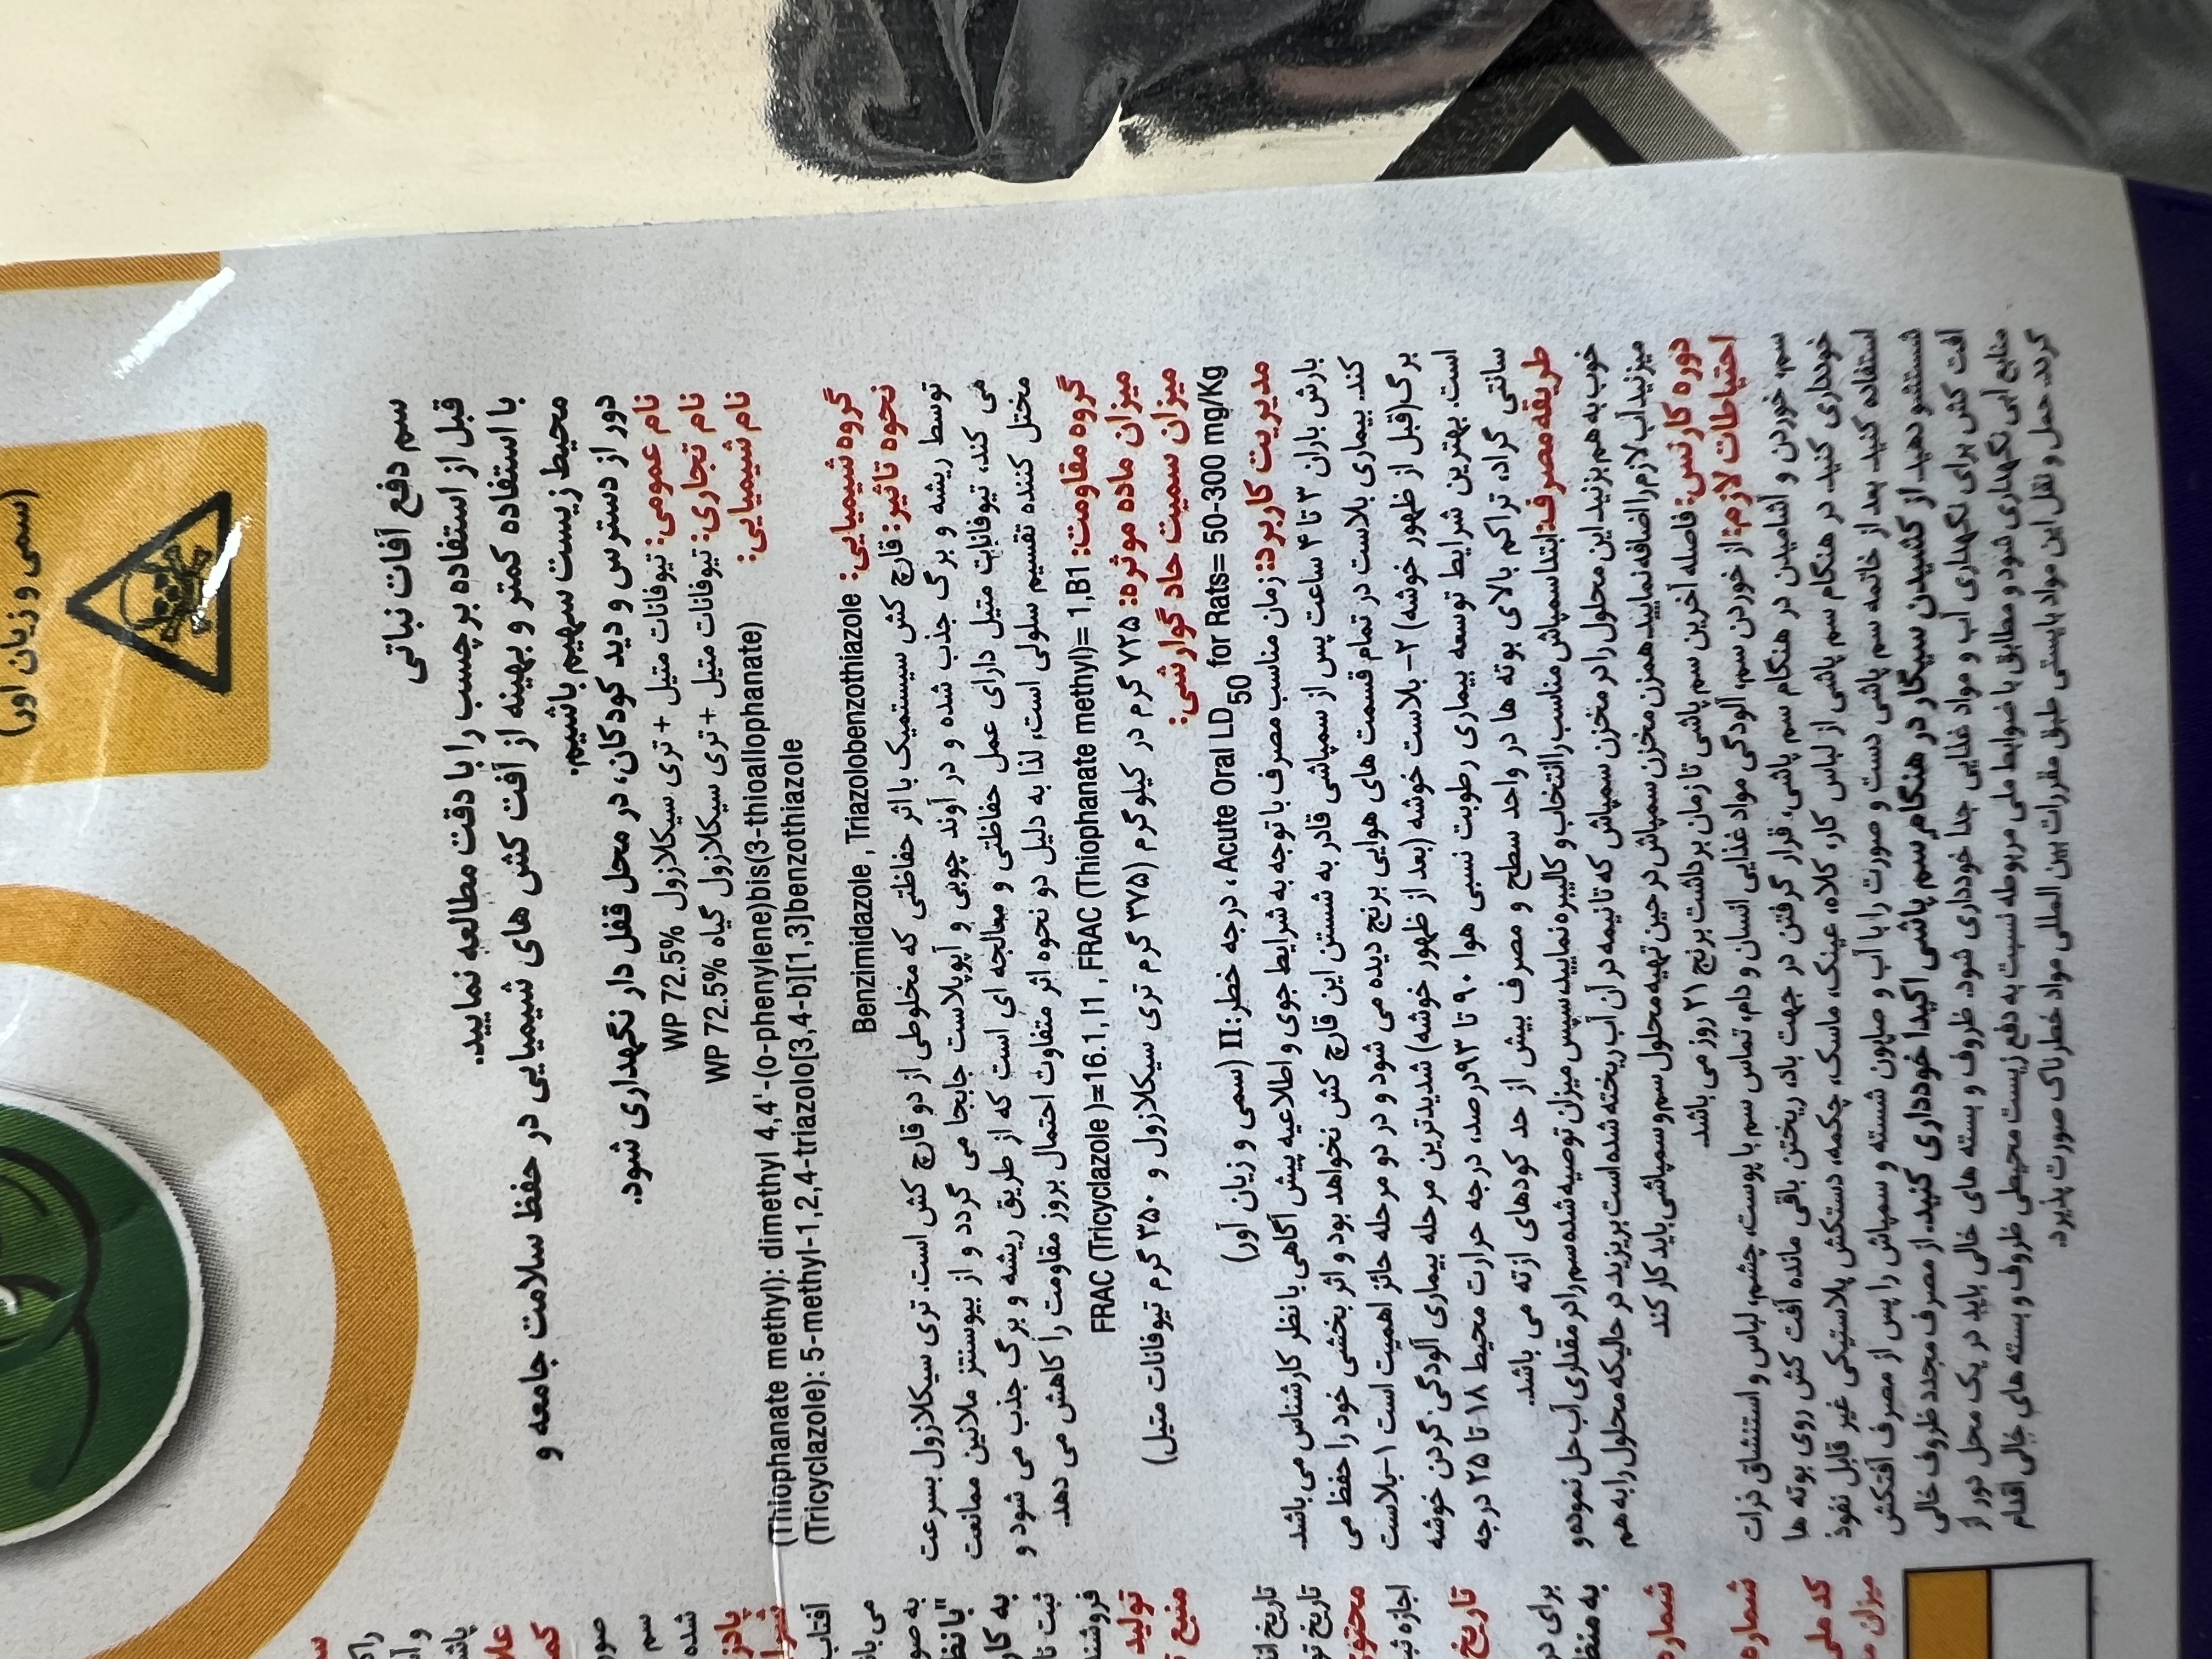 (سمی و زیان آور)
سم دفع آفات نباتی
قبل از استفاده برچسب را با دقت مطالعه نمایید.
با استفاده کمتر و بهینه از آفت کش های شیمیایی در حفظ سلامت جامعه و
محیط زیست سهیم باشیم.
دور از دسترس و دید کودکان، در محل قفل دار نگهداری شود.
نام عمومی: تیوفانات متیل + تری سیکلازول WP 72.5%
نام تجاری: تیوفانات متیل + تری سیکلازول گیاه WP 72.5%
نام شیمیایی:
(Thiophanate methyl): dimethyl 4,4'-(o-phenylene)bis(3-thioallophanate)
(Tricyclazole): 5-methyl-1,2,4-triazolo[3,4-b][1,3]benzothiazole
گروه شیمیایی: Benzimidazole , Triazolobenzothiazole
نحوه تاثیر: قارچ کش سیستمیک با اثر حفاظتی که مخلوطی از دو قارچ کش است. تری سیکلازول بسرعت
توسط ریشه و برگ جذب شده و در آوند چوبی و آپوپلاست جابجا می گردد و از بیوسنتز ملانین ممانعت
می کند، تیوفانات متیل دارای عمل حفاظتی و معالجه ای است که از طریق ریشه و برگ جذب می شود و
مختل کننده تقسیم سلولی است، لذا به دلیل دو نحوه اثر متفاوت احتمال بروز مقاومت را کاهش می دهد.
گروه مقاومت: FRAC (Tricyclazole )=16.1, I1 , FRAC (Thiophanate methyl)= 1,B1
میزان ماده موثره: ۷۲۵ گرم در کیلوگرم (۳۷۵ گرم تری سیکلازول و ۳۵۰ گرم تیوفانات متیل)
میزان سمیت حاد گوارشی:
Acute Oral LD50 for Rats= 50-300 mg/Kg ، درجه خطر: II (سمی و زیان آور)
مدیریت کاربرد: زمان مناسب مصرف با توجه به شرایط جوی و اطلاعیه پیش آگاهی با نظر کارشناس می باشد
بارش باران ۳ تا ۴ ساعت پس از سمپاشی قادر به شستن این قارچ کش نخواهد بود و اثر بخشی خود را حفظ می
کند. بیماری بلاست در تمام قسمت های هوایی برنج دیده می شود و در دو مرحله حائز اهمیت است ۱- بلاست
برگ (قبل از ظهور خوشه) ۲- بلاست خوشه (بعد از ظهور خوشه) شدیدترین مرحله بیماری آلودگی گردن خوشه
است. بهترین شرایط توسعه بیماری رطوبت نسبی هوا ۹۰ تا ۹۳ درصد، درجه حرارت محیط ۱۸ تا ۲۵ درجه
سانتی گراد، تراکم بالای بوته ها در واحد سطح و مصرف بیش از حد کودهای ازته می باشد.
طریقه مصرف: ابتدا سمپاش مناسب را انتخاب و کالیبره نمایید. سپس میزان توصیه شده سم را در مقداری آب حل نموده و
خوب به هم بزنید. این محلول را در مخزن سمپاش که تا نیمه در آن آب ریخته شده است بریزید. در حالیکه محلول را به هم
میزنید آب لازم را اضافه نمایید. همزن مخزن سمپاش در حین تهیه محلول سم و سمپاشی باید کار کند
دوره کارنس: فاصله آخرین سم پاشی تا زمان برداشت برنج ۲۱ روز می باشد.
احتیاطات لازم: از خوردن سم، آلودگی مواد غذایی انسان و دام، تماس سم با پوست، چشم، لباس و استنشاق ذرات
سم، خوردن و آشامیدن در هنگام سم پاشی، قرار گرفتن در جهت باد، ریختن باقی مانده آفت کش روی بوته ها
خودداری کنید. در هنگام سم پاشی از لباس کار، کلاه، عینک، ماسک، چکمه، دستکش پلاستیکی غیر قابل نفوذ
استفاده کنید. بعد از خاتمه سم پاشی دست و صورت را با آب و صابون شسته و سمپاش را پس از مصرف آفتکش
شستشو دهید. از کشیدن سیگار در هنگام سم پاشی اکیدا خودداری کنید. از مصرف مجدد ظروف خالی
آفت کش برای نگهداری آب و مواد غذایی جدا خودداری شود. ظروف و بسته های خالی باید در یک محل دور از
منابع آبی نگهداری شود و مطابق با ضوابط ملی مربوطه نسبت به دفع زیست محیطی ظروف و بسته های خالی اقدام
گردد. حمل و نقل این مواد بایستی طبق مقررات بین المللی مواد خطرناک صورت پذیرد.
آفتاب
می با
به صو
"با نظ
به کار
ثبت نا
فروشند
تولید
منبع
تاریخ ان
تاریخ تو
محتوی
اجازه ثب
تاریخ
برای در
به منظ
شماره
شماره
کد ملی
میزان م